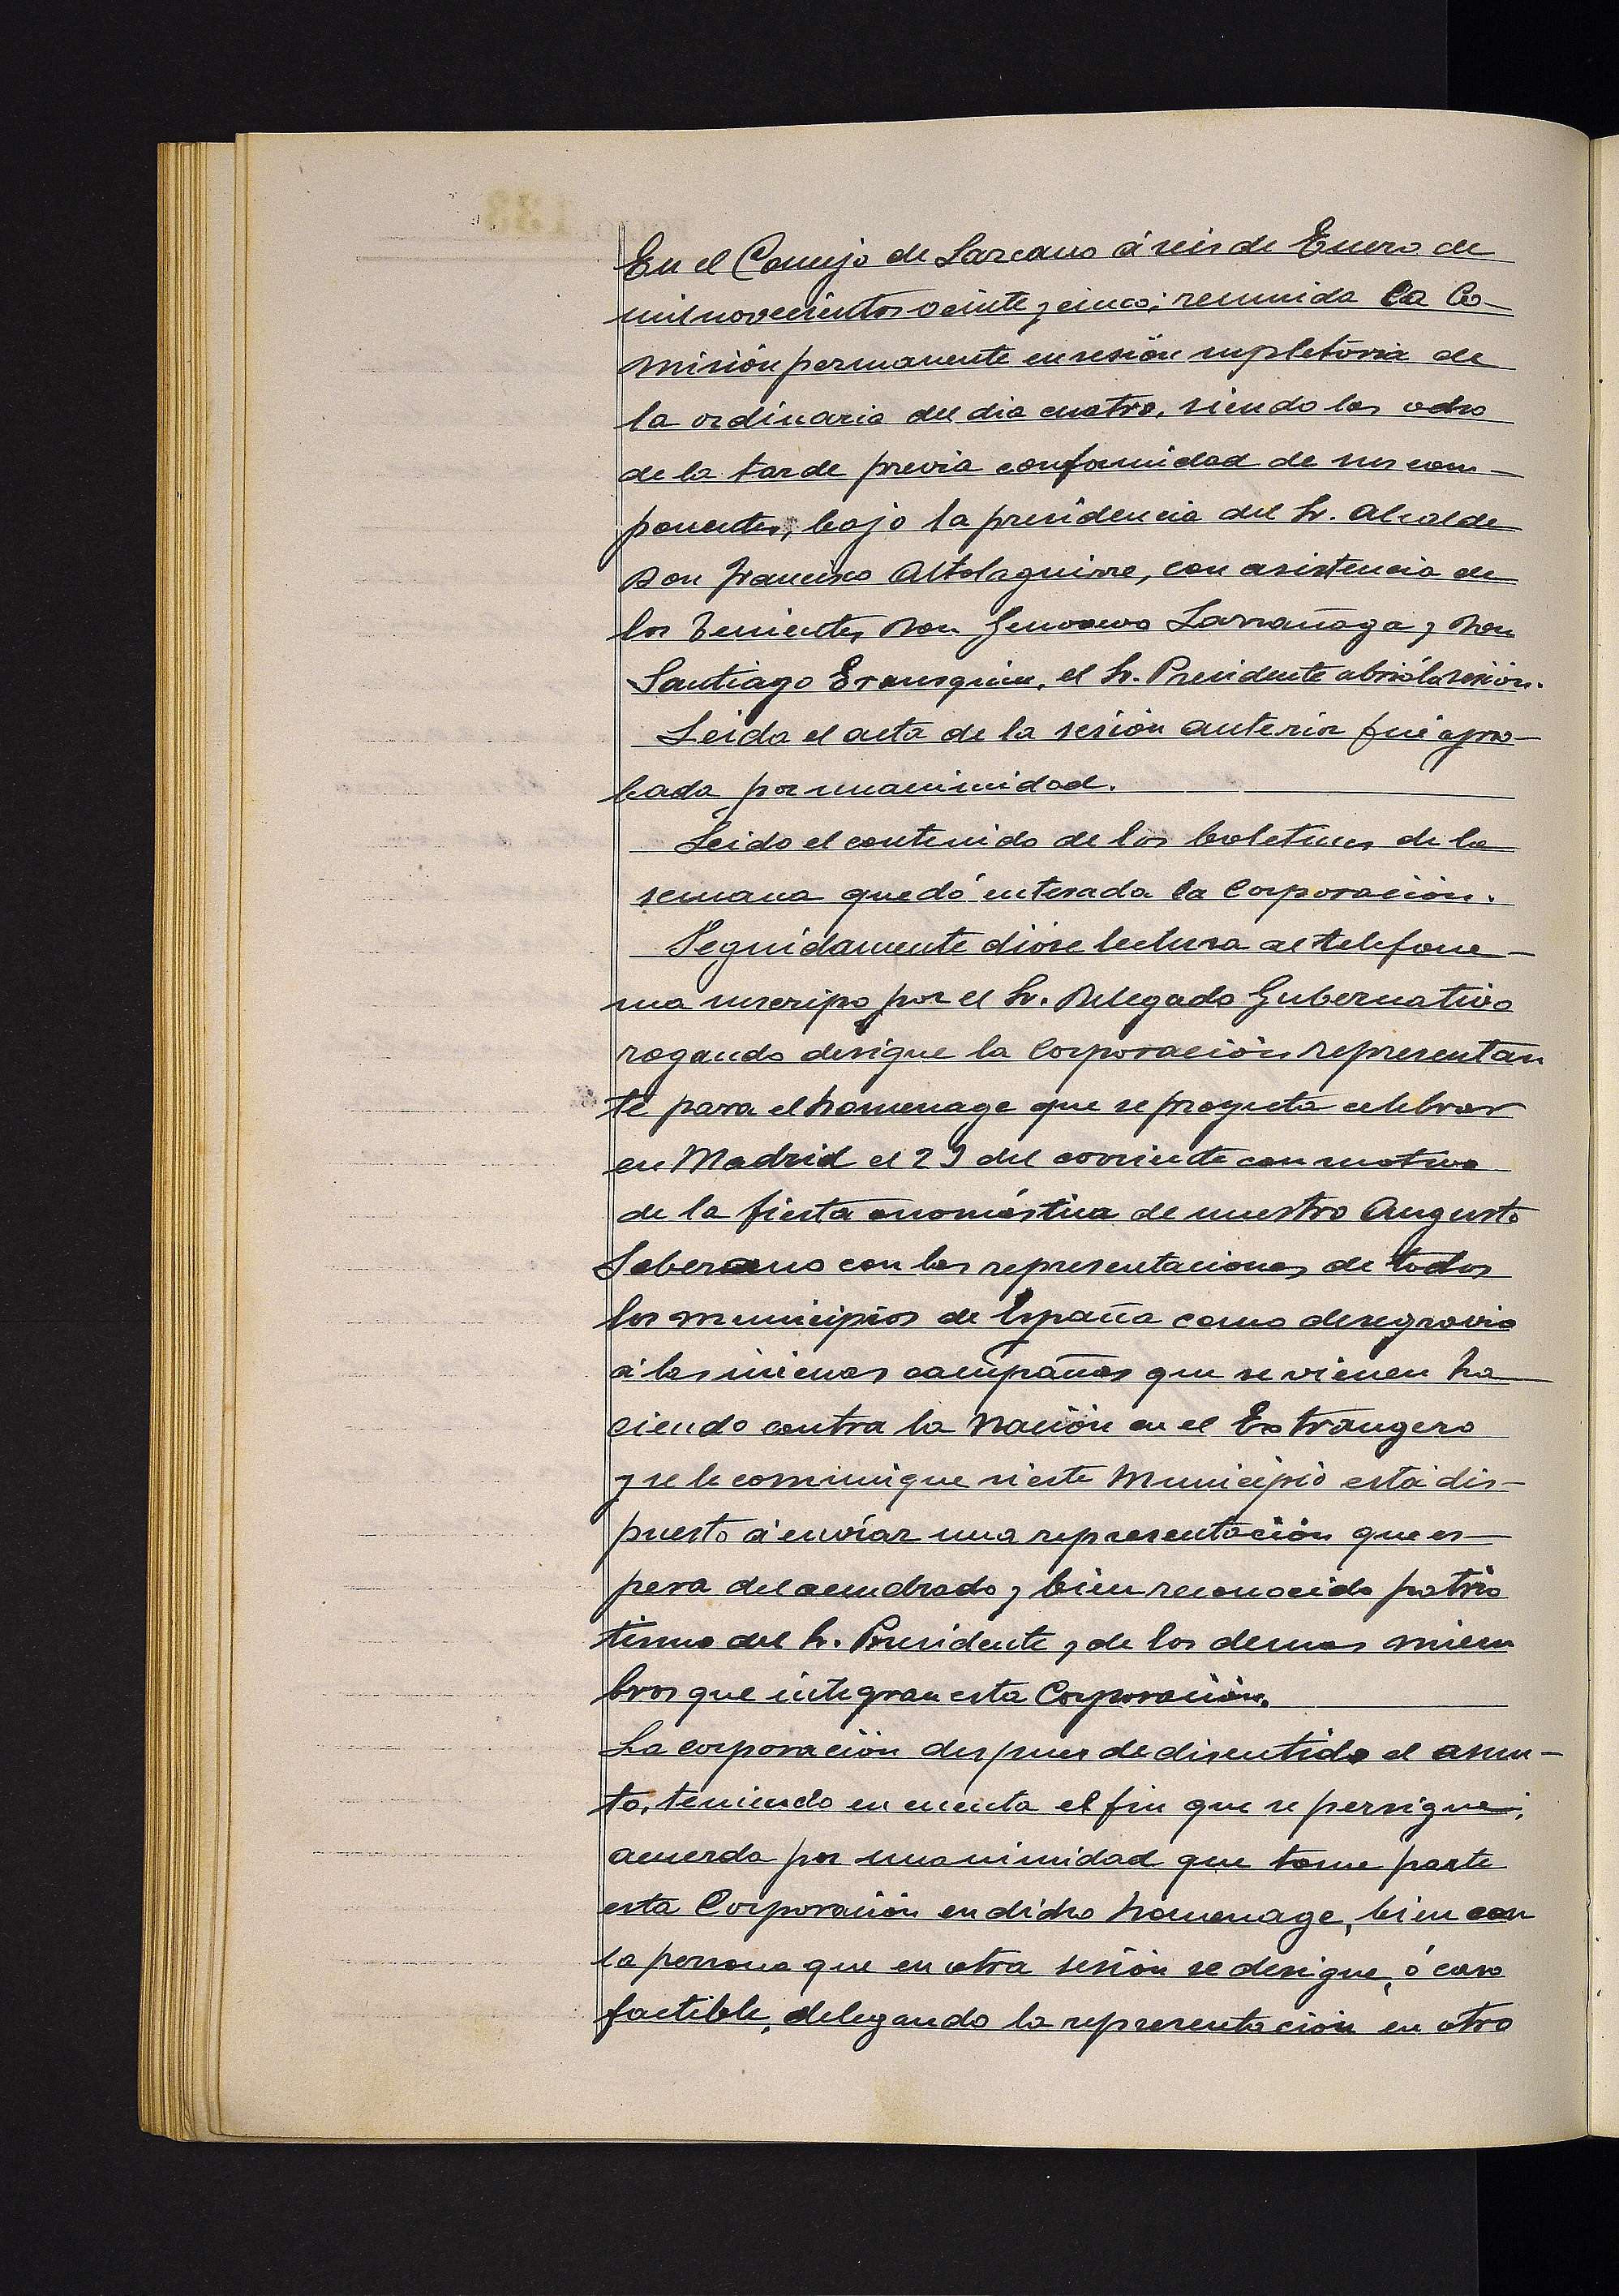 En el Concejo de Lazcano á seis de Enero de
mil novecientos veinte y cinco; reunida la Co-
misión permanente en sesión supletoria de
la ordinaria del dia cuatro, siendo las ocho
de la tarde previa conformidad de sus com-
ponentes, bajo la presidencia del Sr. Alcalde
Don Francisco Altolaguirre, con asistencia de
los Tenientes Don Genaro Larrañaga y Don
Santiago Erausquin, el Sr. Presidente abrió la sesión.
Leida el acta de la sesión anterior fué apro-
bada por unanimidad.
Leido el contenido de los boletines de la
semana quedó enterada la Corporación.
Seguidamente dióse lectura al telefone-
ma suscripo por el Sr. Delegado Gubernativo
rogando designe la Corporación representan
te para el homenage que se proyecta celebrar
en Madrid el 23 del corriente con motivo
de la fiesta onomástica de nuestro Augusto
Soberano con las representaciones de todos
los municipios de España como desagravio
á las inicuas campañas que se vienen ha
ciendo contra la Nación en el Extrangero
y se le comunique si este Municipio está dis-
puesto á envíar una representación que es-
pera del acendrado y bien reconocido patrio
tismo del Sr. Presidente y de los demas miem
bros que integran esta Corporación.
La corporación despues de discutido el asun-
to, teniendo en cuenta el fin que se persigue;
acuerda por unanimidad que tome parte
esta Corporación en dicho homenage, bien con
la persona que en otra sesión se designe, ó caso
factible, delegando la representación en otro